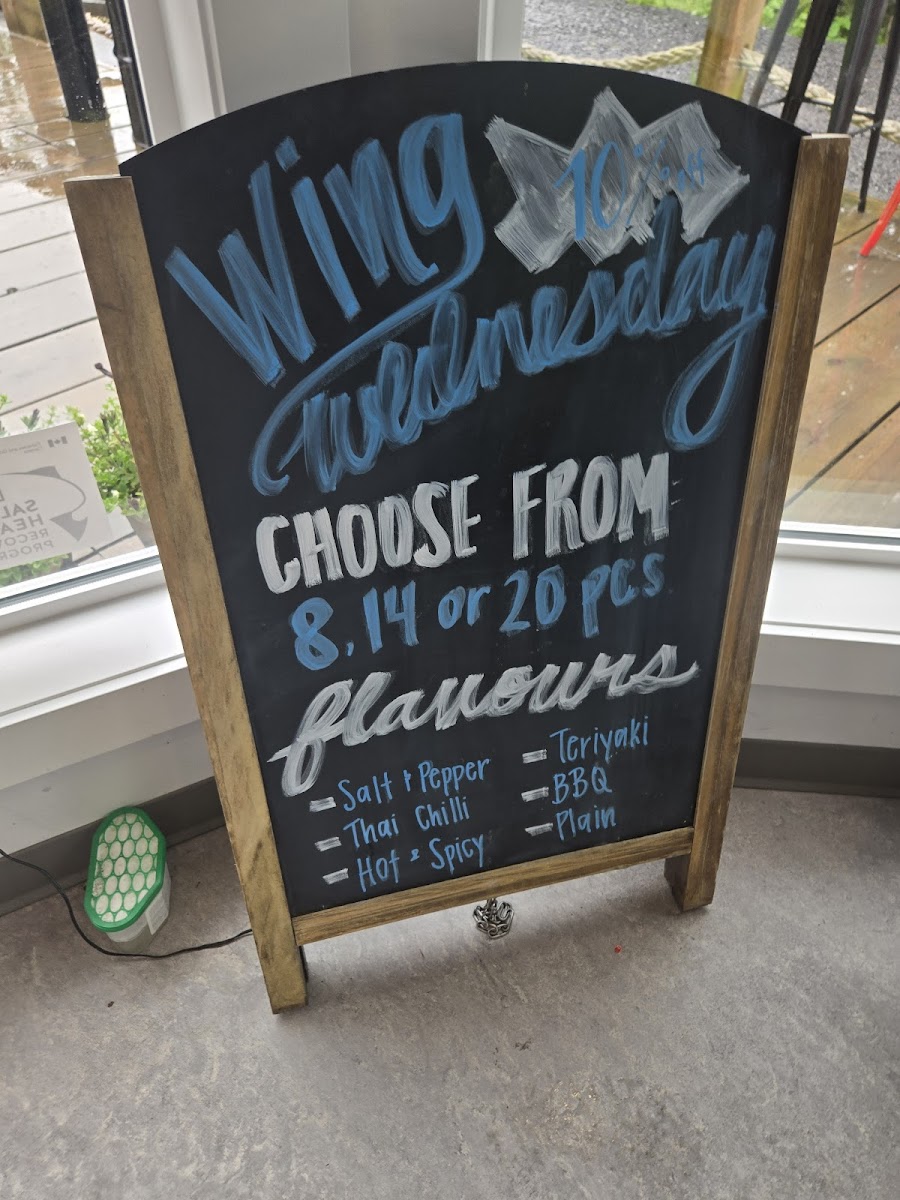 Wing
10% off
Wednesday
CHOOSE FROM
8, 14 or 20 pcs
flavours
- Salt & Pepper
- Thai Chilli
- Hot & Spicy
- Teriyaki
- BBQ
- Plain